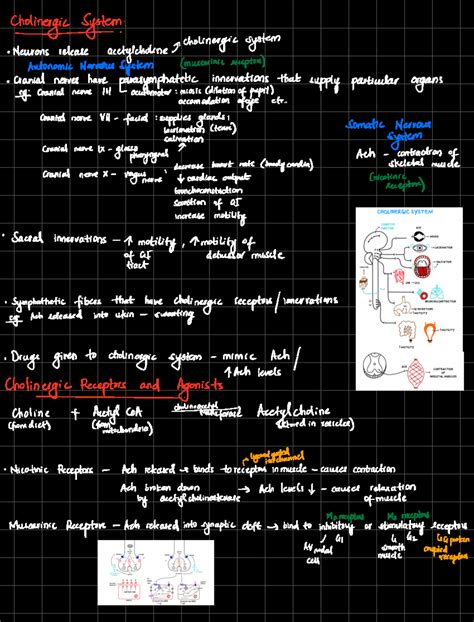 Cholinergic System:
• Neurons release acetylcholine → cholinergic system
Autonomic Nervous System (muscarinic receptor)
• Cranial nerves have parasymphatetic innervations that supply particular organs
eg. Cranial nerve III - oculomotor : miosis (dilation of pupil)
accomodation of eye etc.
Cranial nerve VII - facial : supplies glands :
lacrimation (tears)
salivation
Cranial nerve IX - glosso
pharyngeal
Cranial nerve X - vagus nerve : decrease heart rate (bradycardia)
↓ cardiac output
bronchoconstriction
secretion of GI
increase motility
Somatic Nervous
System
Ach - contraction of
skeletal muscle
(nicotinic
receptors)
CHOLINERGIC SYSTEM
• Sacral innervations - ↑ motility, ↑ motility of
of GI detrusor muscle
tract
• Symphathetic fibres that have cholinergic receptors / innervations
eg. Ach released into skin - sweating
• Drugs given to cholinergic system - mimic Ach /
↑ Ach levels
Cholinergic Receptors and Agonists
Choline + Acetyl CoA choline acetyl transferase Acetylcholine
(from diet) (from mitochondria) (stored in vesicles)
ligand gated ion channel
• Nicotinic Receptors - Ach released → binds to receptors in muscle - causes contraction
Ach broken down → Ach levels ↓ - causes relaxation
by acetylcholinesterase of muscle
M2 receptors M3 receptors
Muscarinic Receptors - Ach released into synaptic cleft → bind to inhibitory or stimulatory receptors
nodal smooth Gq protein
cell muscle coupled
receptors